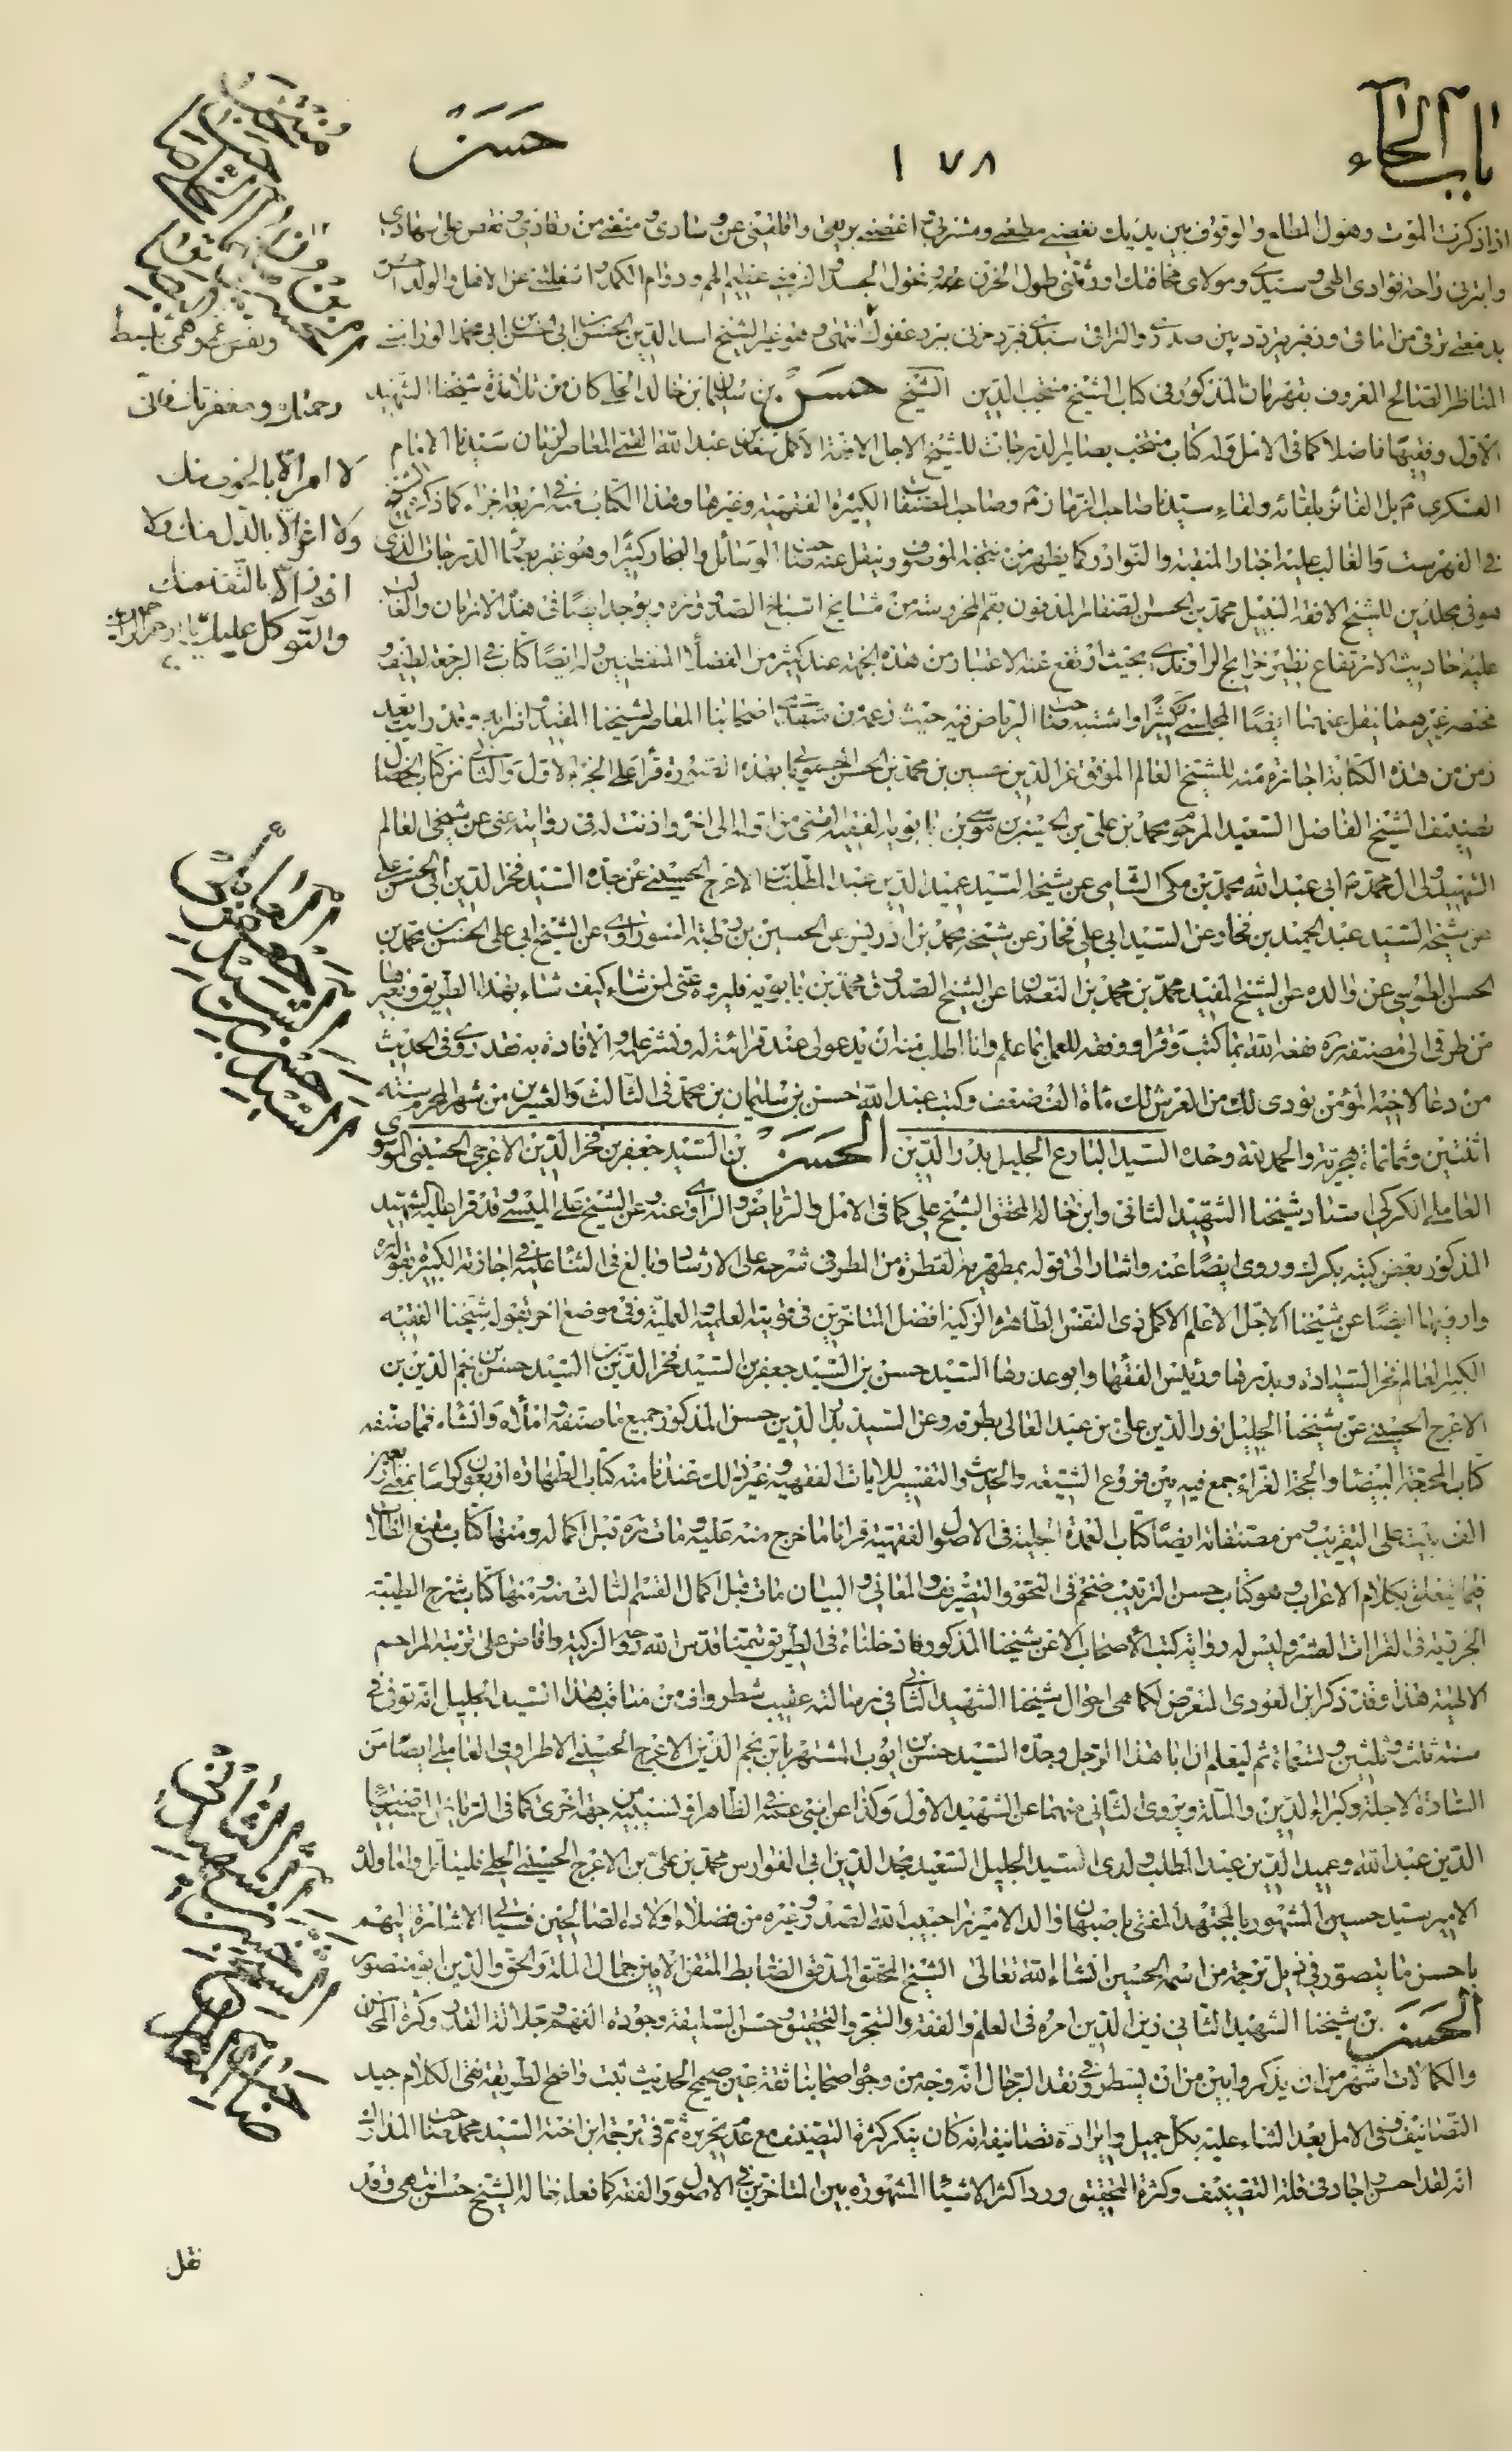 باب الحاء
١٧٨
حسن
اذا ذكرت الموت وهول المطلع والوقوف بين يديك نغصني مطعمي ومشربي واغصني بريقي واقلقني عن وسادي ومنعني من رقادي ونغص علي سهادي
وابتزني راحة فؤادي الهي وسيدي ومولاي مخافتك اورثتني طول الحزن ونحول الجسد والزمتني عظيم الهم ودوام الكمد واشغلتني عن الاهل والولد
المناظر الصالح المعروف بقهرمان المذكور في كتاب الشيخ منتجب الدين الشيخ حسن بن سليمان بن خالد الحلي كان من تلامذة شيخنا الشهيد
الاول وفقيها فاضلا كما في الامل وله كتاب منتخب بصاير الدرجات للشيخ الاجل الافقه الاكمل سعد بن عبد الله القمي المعاصر لزمان سيدنا الامام
العسكري بل الفائز بلقائه ولقاء سيدنا صاحب الزمان وصاحب المصنفات الكثيرة الفقهية وغيرها وهذا الكتاب في اربعة اجزاء كما ذكره الشيخ
في الفهرست والغالب عليه اخبار المنقبة والنوادر كما يظهر من منتخبه الموصوف وينقل عنه صاحب الوسائل والبحار كثيرا وهو غير بصائر الدرجات الذي
هو في مجلدين للشيخ الافقه النبيل محمد بن الحسن الصفار المدفون بقم المحروسة من مشايخ اشياخ الصدوق ره ويوجد ايضا في هذه الازمان والغالب
عليه احاديث الارتفاع نظير خرايج الراوندي بحيث ارتفع عنه الاعتبار من هذه الجهة عند كثير من الفضلاء المتفطنين وله ايضا كتاب في الرجعة لطيف و
مختصر غيرهما ينقل عنهما ايضا المجلسي كثيرا واشتبه صاحب الرياض فيه حيث زعمه من متقدمي اصحابنا المعاصر لشيخنا المفيد
زمن من هذه الكتابة اجازة منه للشيخ العالم الموفق عز الدين حسين بن محمد بن الحسن الحموياني بهذه الصورة قرأ علي الجزء الاول والثاني من كتاب الخصال
تصنيف الشيخ الفاضل السعيد المرحوم محمد بن علي بن الحسين بن موسى بن بابويه الفقيه القمي من اوله الى اخره واذنت له في روايته عني عن شيخي العالم
الشهيد ولي ال محمد ابي عبد الله محمد بن مكي الشامي عن شيخه السيد عميد الدين عبد المطلب بن الاعرج الحسيني عن جده السيد فخر الدين ابي الحسن علي
عن شيخه السيد عبد الحميد بن فخار عن السيد ابي علي فخار عن شيخه محمد بن ادريس عن الحسين بن رطبة السوراوي عن الشيخ ابي علي الحسن بن محمد بن
الحسن الطوسي عن والده عن الشيخ المفيد محمد بن محمد بن النعمان عن الشيخ الصدوق محمد بن بابويه فليروه عني لمن شاء كيف شاء بهذا الطريق وغيرها
من طرقي الى مصنفه ره نفعه الله بما كتب وقرأ ووفقه للعمل بما علم وانا اطلب منه ان يدعو لي عند قرائته له ونشر علمه والافادة به فقد روي في الحديث
من دعا لاخيه المؤمن نودي لك من العرش لك مأة الف ضعف وكتب عبد الله حسن بن سليمان بن محمد في الثالث والعشرين من شهر المحرم سنة
اثنتين وثمانمأة هجرية والحمد لله وحده السيد البارع الجليل بدر الدين الحسن بن السيد جعفر بن فخر الدين الاعرجي الحسيني الموسوي
العاملي الكركي استاد شيخنا الشهيد الثاني وابن خالة المحقق الشيخ علي كما في الامل والرياض والراوي عنه وعن الشيخ علي الميسي وقد قرأ عليه الشهيد
المذكور بعض كتبه بكرك وروى ايضا عنه واشار الى قوله بمطهرية القطرة من المطر في شرحه على الارشاد وبالغ في الثناء عليه في اجازته الكبيرة بقوله
وارويها ايضا عن شيخنا الاجل الاعلم الاكمل ذي النفس الطاهرة الزكية افضل المتأخرين في قوتيه العلمية والعملية وفي موضع اخر بقوله شيخنا الفقيه
الكبير العالم فخر السيادة وبدرها ورئيس الفقهاء وابو عذرها السيد حسن بن السيد جعفر بن السيد فخر الدين بن السيد حسن بن نجم الدين بن
الاعرج الحسيني عن شيخنا الجليل نور الدين علي بن عبد العالي بطرقه وعن السيد بدر الدين حسن المذكور جميع ما صنفه واملاه وانشاه فمما صنفه
كتاب المحجة البيضاء والحجة الغراء جمع فيه بين فروع الشيعة والحديث والتفسير للايات الفقهية وغير ذلك عندنا منه كتاب الطهارة اربعون كراسا
الف بيت على التقريب ومن مصنفاته ايضا كتاب العمدة الجلية في الاصول الفقهية قرأنا ما خرج منه عليه ومات ره قبل اكماله ومنها كتاب مقنع الطلاب
فيما يتعلق بكلام الاعراب وهو كتاب حسن الترتيب ضخم في النحو والتصريف والمعاني والبيان مات قبل اكمال القسم الثالث منه ومنها كتاب شرح الطيبة
الجزرية في القراءات العشر وليس له رواية كتب الاصحاب الا عن شيخنا المذكور فادخلناه في الطريق تيمنا قدس الله روحه الزكية وافاض على تربته المراحم
الالهية هذا وقد ذكر ابن العودي المتعرض لكماهي احوال شيخنا الشهيد الثاني في رسالته عقيب شطر واف من مناقب هذا السيد الجليل انه توفي في
سنة ثلث وثلثين وتسعمأة ثم ليعلم ان ابا هذا الرجل وجده السيد حسن بن ايوب المشتهر بابن نجم الدين الاعرج الحسيني الاطراوي العاملي ايضا من
السادة الاجلة وكبراء الدين والملة ويروي الثاني منهما عن الشهيد الاول وكذا عن ابني عمه في الظاهر او لنسبتين من جهة اخرى كما في الرياض السيد ضياء
الدين عبد الله وعميد الدين عبد المطلب ولدي السيد الجليل السعيد مجد الدين ابي الفوارس محمد بن علي بن الاعرج الحسيني الحلي فليتأمل واما ولده
الامير سيد حسين المشهور بالمجتهد المفتي باصبهان والد الاميرزا حبيب الله الصدر وغيره من فضلاء اولاده الصالحين فسيأتي الاشارة اليهم
باحسن ما يتصور في ذيل ترجمة من اسمه الحسين انشاء الله تعالى الشيخ المحقق المدقق الضابط المتقن الامين جمال الملة والحق والدين ابو منصور
الحسن بن شيخنا الشهيد الثاني زين الدين امره في العلم والفقه والتبحر والتحقيق وحسن السليقة وجودة الفهم وجلالة القدر وكثرة المحاسن
والكمالات اشهر من ان يذكر وابين من ان يسطر وفي نقد الرجال انه وجه من وجوه اصحابنا ثقة عين صحيح الحديث ثبت واضح الطريقة نقي الكلام جيد
التصانيف وفي الامل بعد الثناء عليه بكل جميل وايراده تصانيفه انه كان ينكر كثرة التصنيف مع عدم تحريره ثم في ترجمة ابن اخته السيد محمد صاحب المدارك
انه لقد احسن واجاد في قلة التصنيف وكثرة التحقيق ورد اكثر الاشياء المشهورة بين المتأخرين في الاصول والفقه كما فعله خاله الشيخ حسن انتهى وقد
نقل